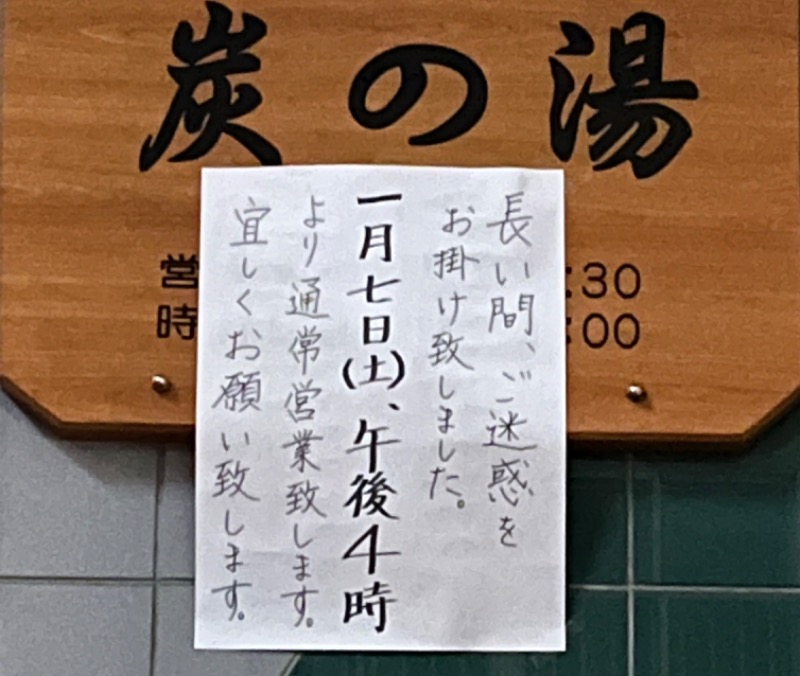 炭の湯
営
:30
時
:00
長い間、ご迷惑を
お掛け致しました。
一月七日(土)、午後4時
より通常営業致します。
宜しくお願い致します。